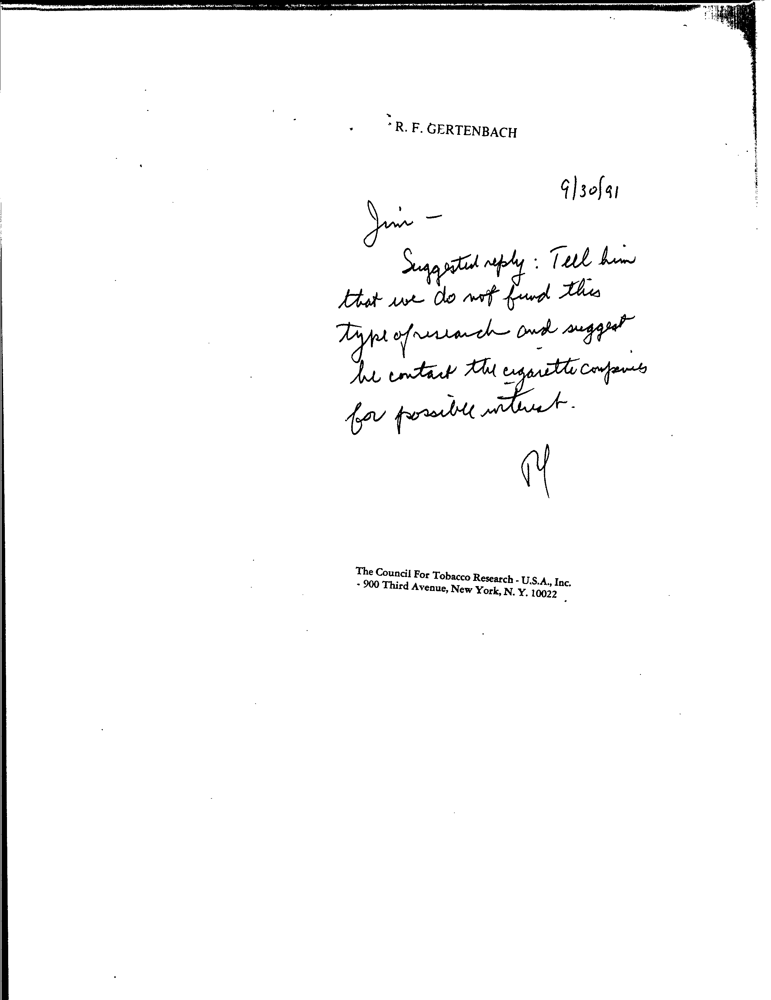 R. F. GERTENBACH
9/30/91
Jim -
Suggested reply: Tell him
that we do not fund this
type of research and suggest
he contact the cigarette companies
for possible interest.
The Council For Tobacco Research - U.S.A., Inc.
- 900 Third Avenue, New York, N. Y. 10022